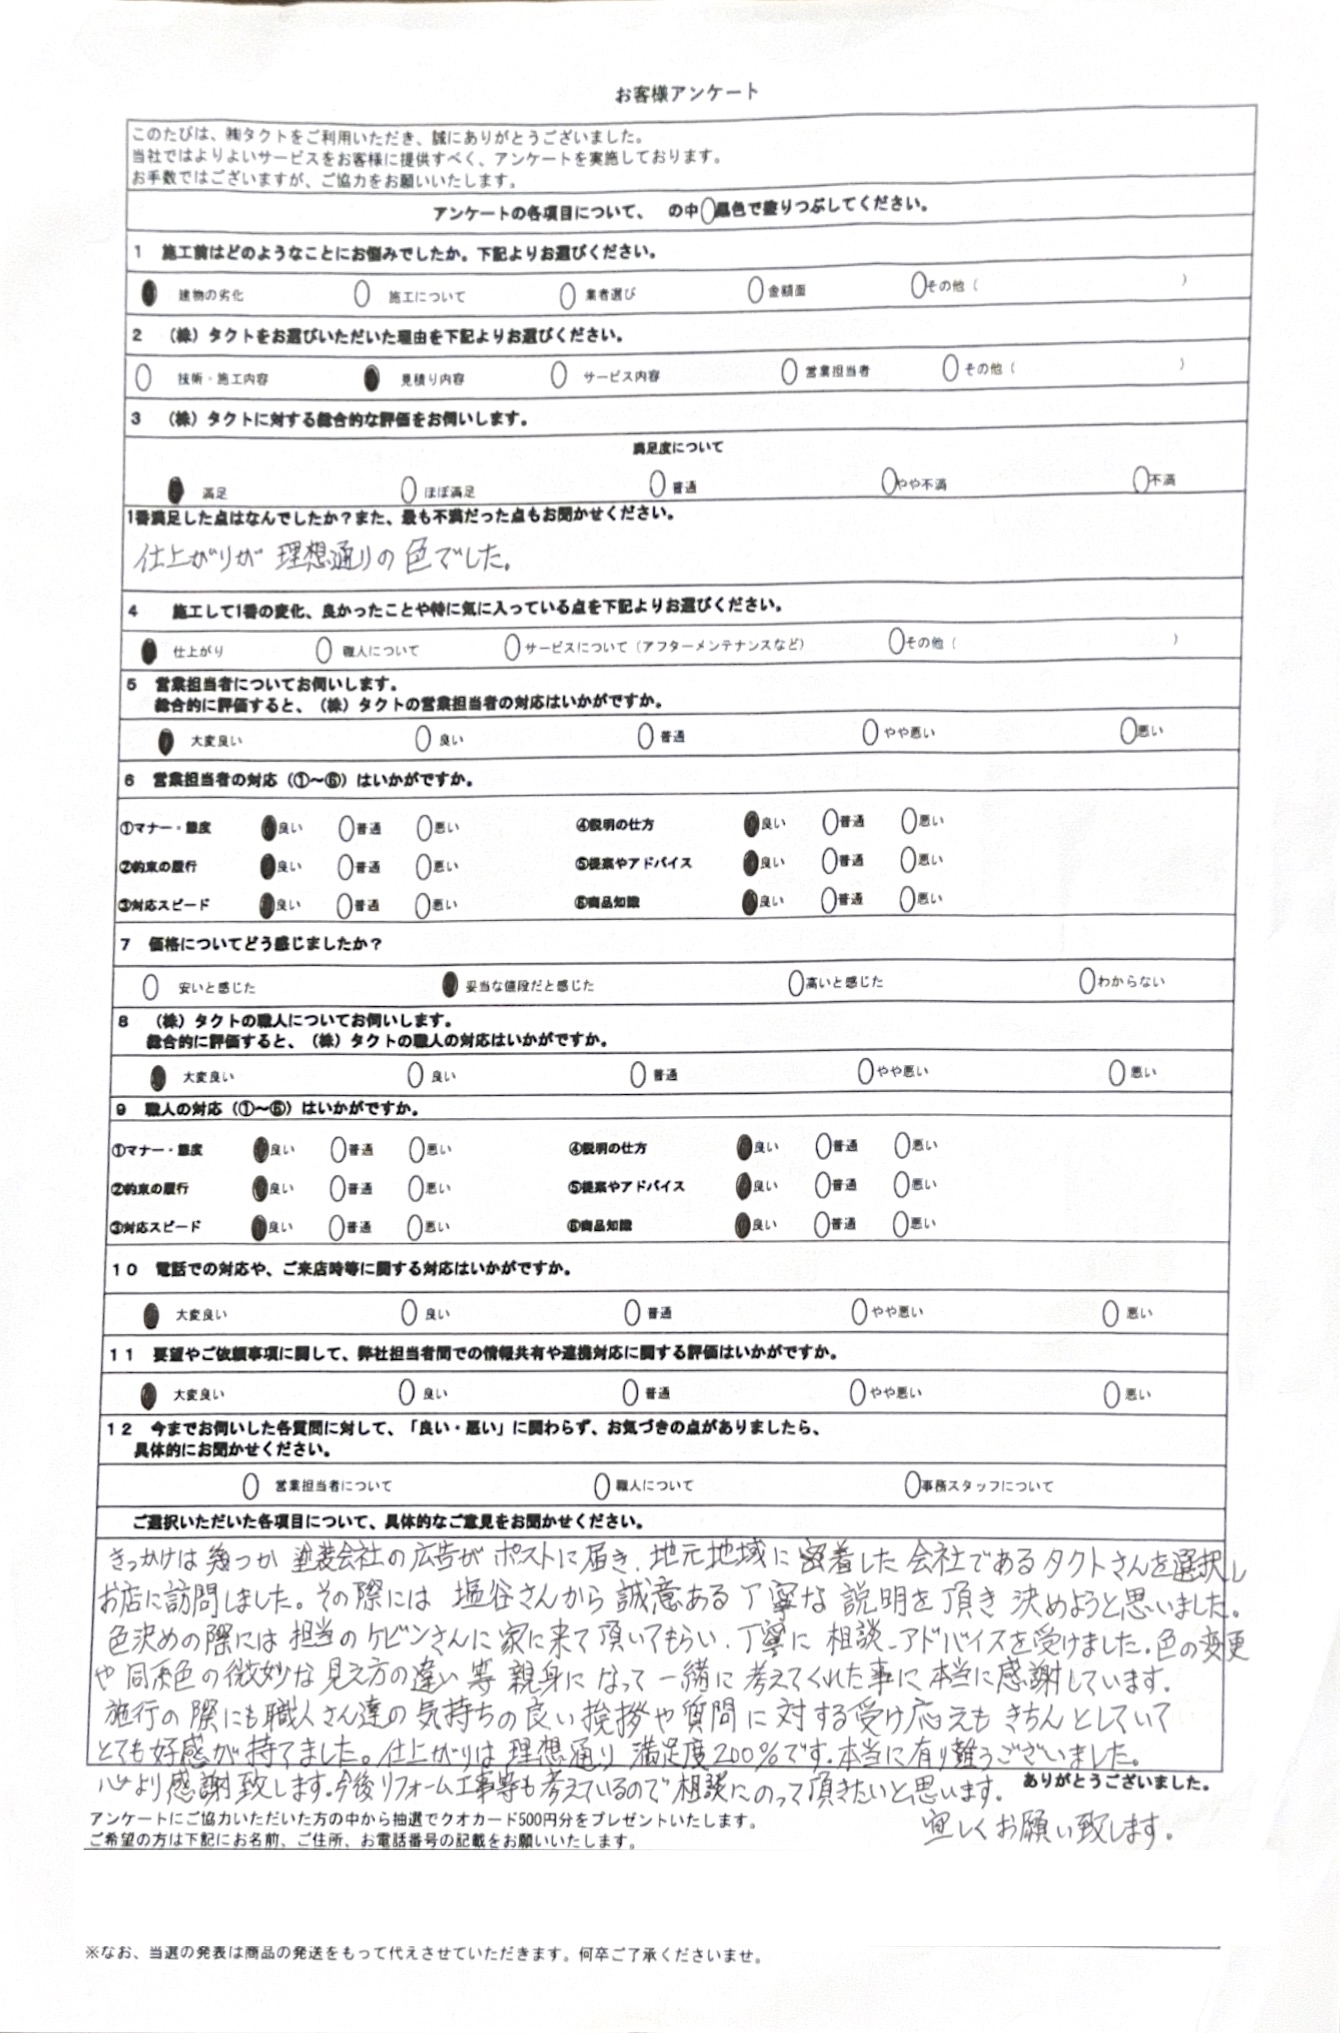 お客様アンケート
このたびは、㈱タクトをご利用いただき、誠にありがとうございました。
当社ではよりよいサービスをお客様に提供すべく、アンケートを実施しております。
お手数ではございますが、ご協力をお願いいたします。
アンケートの各項目について、 の中 黒色で塗りつぶしてください。
1 施工前はどのようなことにお悩みでしたか。下記よりお選びください。
建物の劣化 施工について 業者選び 金額面 その他（ ）
2 （株）タクトをお選びいただいた理由を下記よりお選びください。
技術・施工内容 見積り内容 サービス内容 営業担当者 その他（ ）
3 （株）タクトに対する総合的な評価をお伺いします。
満足度について
満足 ほぼ満足 普通 やや不満 不満
1番満足した点はなんでしたか？また、最も不満だった点もお聞かせください。
仕上がりが 理想通りの 色でした。
4 施工して1番の変化、良かったことや特に気に入っている点を下記よりお選びください。
仕上がり 職人について サービスについて（アフターメンテナンスなど） その他（ ）
5 営業担当者についてお伺いします。
総合的に評価すると、（株）タクトの営業担当者の対応はいかがですか。
大変良い 良い 普通 やや悪い 悪い
6 営業担当者の対応（①～⑥）はいかがですか。
①マナー・態度 良い 普通 悪い ④説明の仕方 良い 普通 悪い
②約束の履行 良い 普通 悪い ⑤提案やアドバイス 良い 普通 悪い
③対応スピード 良い 普通 悪い ⑥商品知識 良い 普通 悪い
7 価格についてどう感じましたか？
安いと感じた 妥当な値段だと感じた 高いと感じた わからない
8 （株）タクトの職人についてお伺いします。
総合的に評価すると、（株）タクトの職人の対応はいかがですか。
大変良い 良い 普通 やや悪い 悪い
9 職人の対応（①～⑥）はいかがですか。
①マナー・態度 良い 普通 悪い ④説明の仕方 良い 普通 悪い
②約束の履行 良い 普通 悪い ⑤提案やアドバイス 良い 普通 悪い
③対応スピード 良い 普通 悪い ⑥商品知識 良い 普通 悪い
10 電話での対応や、ご来店時等に関する対応はいかがですか。
大変良い 良い 普通 やや悪い 悪い
11 要望やご依頼事項に関して、弊社担当者間での情報共有や連携対応に関する評価はいかがですか。
大変良い 良い 普通 やや悪い 悪い
12 今までお伺いした各質問に対して、「良い・悪い」に関わらず、お気づきの点がありましたら、
具体的にお聞かせください。
営業担当者について 職人について 事務スタッフについて
ご選択いただいた各項目について、具体的なご意見をお聞かせください。
きっかけは 幾つか 塗装会社の 広告が ポストに 届き、地元地域に 密着した 会社である タクトさんを選択し
お店に訪問しました。その際には 塩谷さんから 誠意ある 丁寧な 説明を 頂き 決めようと思いました。
色決めの際には 担当の ケビンさんに 家に来て 頂いてもらい、丁寧に 相談、アドバイスを受けました。色の変更
や 同系色の微妙な 見え方の違い 等 親身に なって 一緒に 考えてくれた事に 本当に感謝しています。
施行の 際にも職人さん達の 気持ちの良い 挨拶や 質問に 対する受け応えも きちんとしていて
とても好感が 持てました。仕上がりは 理想通り 満足度200%です。本当に有り難うございました。
心より感謝致します。今後 リフォーム工事等も考えているので 相談にのって頂きたいと思います。
ありがとうございました。
宜しくお願い致します。
アンケートにご協力いただいた方の中から抽選でクオカード500円分をプレゼントいたします。
ご希望の方は下記にお名前、ご住所、お電話番号の記載をお願いいたします。
※なお、当選の発表は商品の発送をもって代えさせていただきます。何卒ご了承くださいませ。